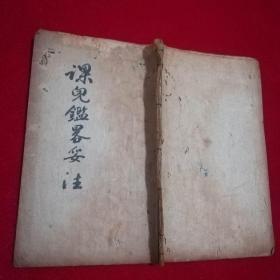 课兒鑑畧妥注